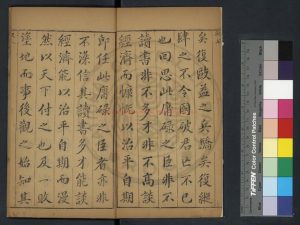 矣復敺益之兵驕矣復縱
肆之不令國破君亡不已
也回思此庸碌之臣非不
讀書非不多才非不高談
經濟而慷慨以治平自期
即任此庸碌之臣者亦非
不深信其讀書多才能談
經濟能以治平自期而漫
然以天下付之也及一敗
塗地而事後觀之始知其
TIFFEN Color Control Patches